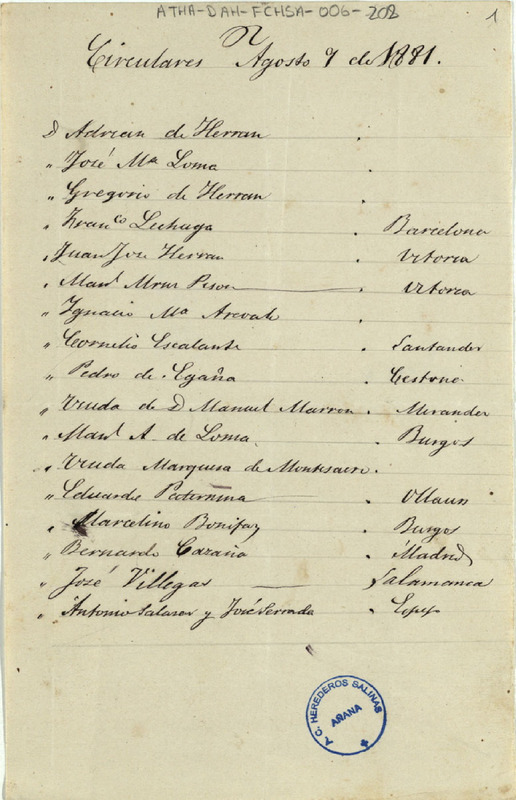 ATHA-DAH-FCHSA-006-202
1
Circulares Agosto 9 de 1881.
D Adrian de Herran .
" José Mª Loma .
" Gregorio de Herran .
" Franco Lechuga . Barcelona
" Juan José Herran . Vitoria
" Manl . Vitoria
" Ignacio Mª Arevalo .
" Cornelio Escalante . Santander
" Pedro de Egaña . Cestona
" Viuda de D Manuel Marron . Miranda
" Manl A. de Loma . Burgos
" Viuda Marquesa de .
" Eduardo Paternina . Ollauri
" Marcelino Bonifaz . Burgos
" Bernardo . Madrid
" José Villegas Salamanca
" Antonio Salazar y José Serrada .
A. C. HEREDEROS SALINAS
AÑANA